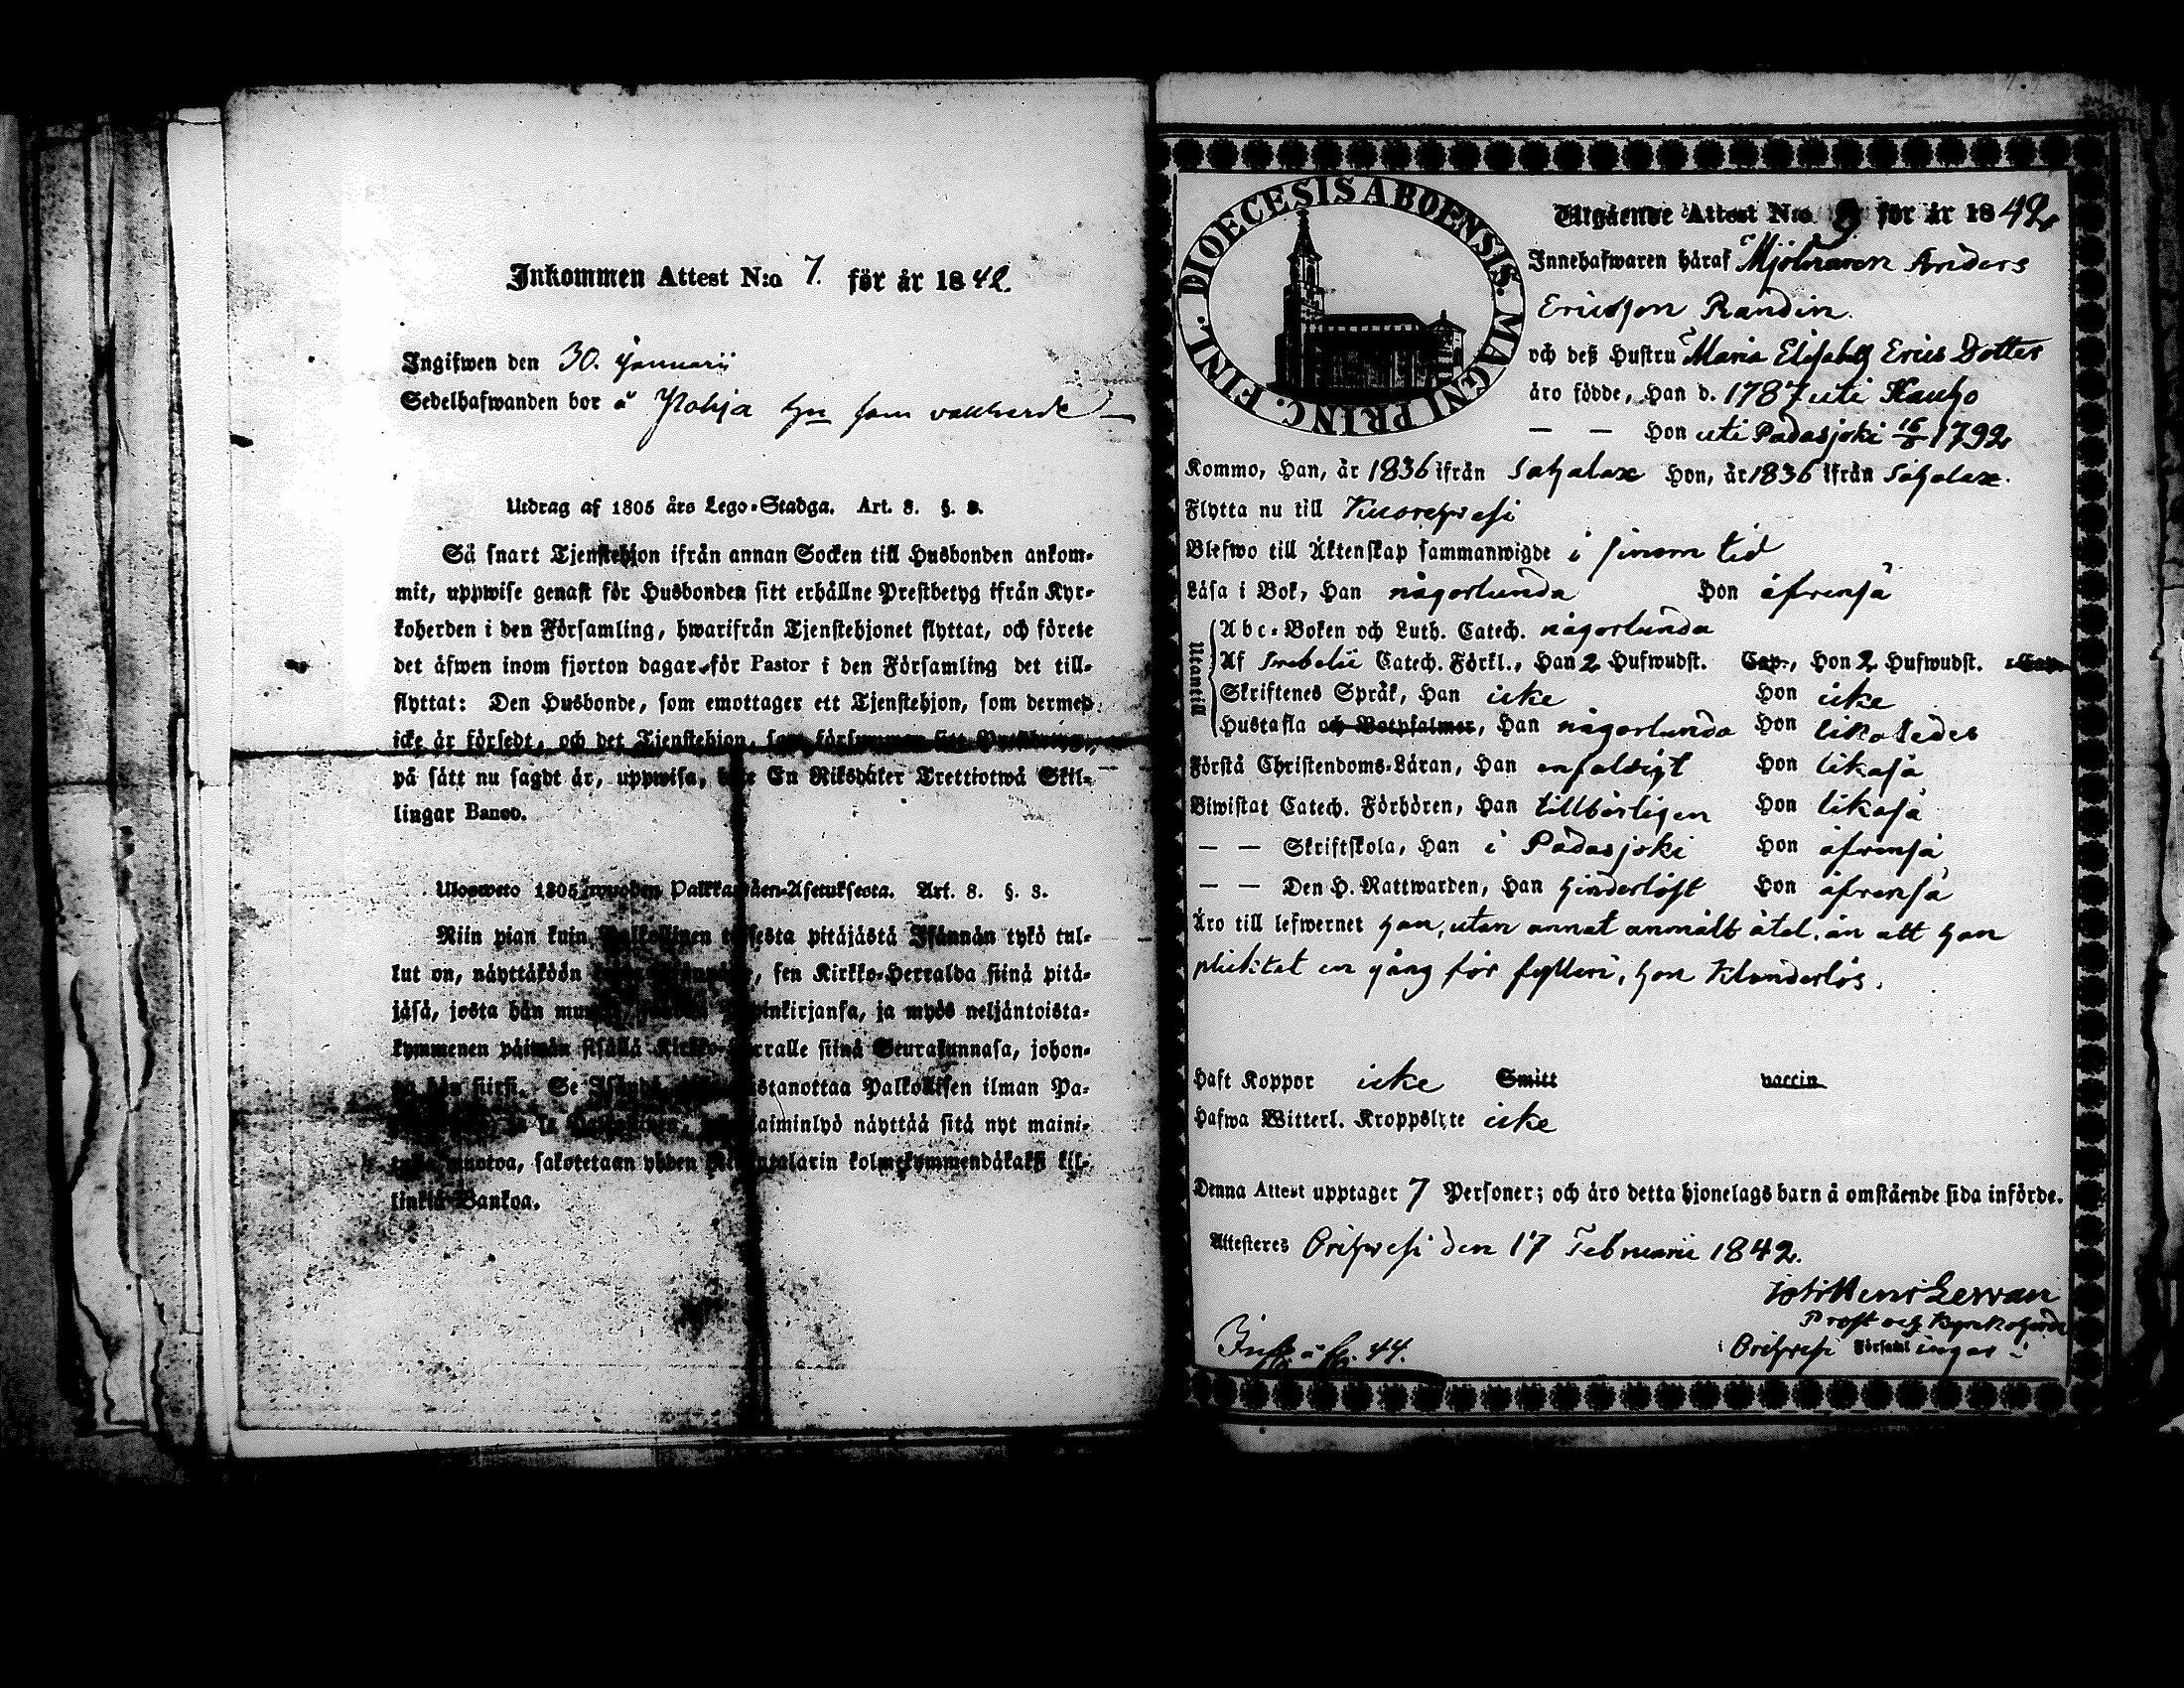 Inkommen Attest N:o 7. för år 1842.
Ingifwen den 30. Januarii
Sedelhafwanden bor å Pohja by som vallherde
Utdrag af 1805 års Lego-Stadga. Art. 8. §. 8.
Så snart Tjenstehjon ifrån annan Socken till Husbonden ankom-
mit, uppwise genast för Husbonden sitt erhållne Prestbetyg ifrån Kyr-
koherden i den Församling, hwarifrån Tjenstehjonet flyttat, och förete
det äfwen inom fjorton dagar för Pastor i den Församling det till-
flyttat: Den Husbonde, som emottager ett Tjenstehjon, som dermed
icke är försedt, och det Tjenstehjon, som försummar sitt
på sätt nu sagdt är, uppwisa, böte En Riksdaler Trettiotwå Skil-
lingar Banco.
Ulosweto 1805 wuoden Palkkawäen-Asetuksesta. Art. 8. §. 8.
Niin pian kuin Palkollinen toisesta pitäjästä Isännän tykö tul-
kut on, näyttäköön sen Kirkko-Herralda siinä pitä-
jäsä, josta hän ja myös neljäntoista-
kymmenen päiwän sisällä Kirkko-Herralle siinä Seurakunnasa, johon-
ga hän siirsi. Se Isändä, wastanottaa Palkollisen ilman Pa-
laiminlyö näyttää sitä nyt maini-
muotoa, sakotetaan yhden Riksitalarin kolmekymmendäkaksi kil-
linkiä Bankoa.
DIOECESIS ABOENSIS. MAGNI PRINC. FINL.
Utgående Attest N:o 9 för år 1842
Innehafwaren häraf Mjölnaren Anders
Ericsson Randin.
och deß Hustru Maria Elisabeth Erics Dotter
äro födde, Han d. 1787 uti Hauho
— — Hon uti Padasjoki 16/8 1792
Kommo, Han, år 1836 ifrån Sahalax Hon, år 1836 ifrån Sahalax.
Flytta nu till Kuorehwesi
Blefwo till Äktenskap sammanwigde i sinom tid
Läsa i Bok, Han någorlunda Hon äfvenså
Utantill
Abc-Boken och Luth. Catech. någorlunda
Af Svebelii Catech. Förkl., Han 2 Hufwudst. Cap., Hon 2 Hufwudst. Cap.
Skriftenes Språk, Han icke Hon icke
Hustafla och Botpsalmer, Han någorlunda Hon likaledes
Förstå Christendoms-Läran, Han enfaldigt Hon likaså
Biwistat Catech. Förhören, Han tillbörligen Hon likaså
— — Skriftskola, Han i Padasjoki Hon äfvenså
— — Den H. Nattwarden, Han hinderlöst Hon äfvenså
Äro till lefwernet han, utan annat anmält åtal, än att han
pliktat en gång för fylleri, hon klanderlös.
Haft Koppor icke Smitt vaccin
Hafwa Witterl. Kroppslyte icke
Denna Attest upptager 7 Personer; och äro detta hjonelags barn å omstående sida införde.
Attesteres Orihwesi den 17 Februarii 1842.
Prost och Kyrkoherde
i Orihwesi Församlingar